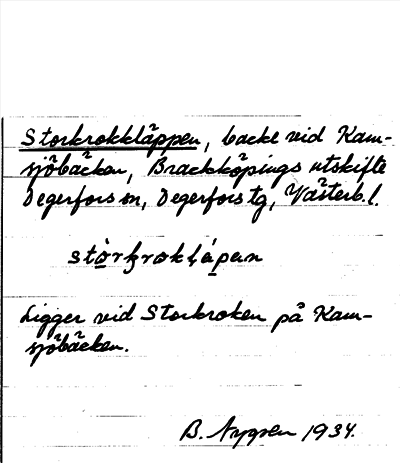 Storkrokkläppen, backe vid Kam-
sjöbäcken, Brackköpings utskifte
Degerfors sn, Degerfors tg, Västerb. l.
stòrkrokḷápan
Ligger vid Storkroken på Kam-
sjöbäcken.
B. 1934.